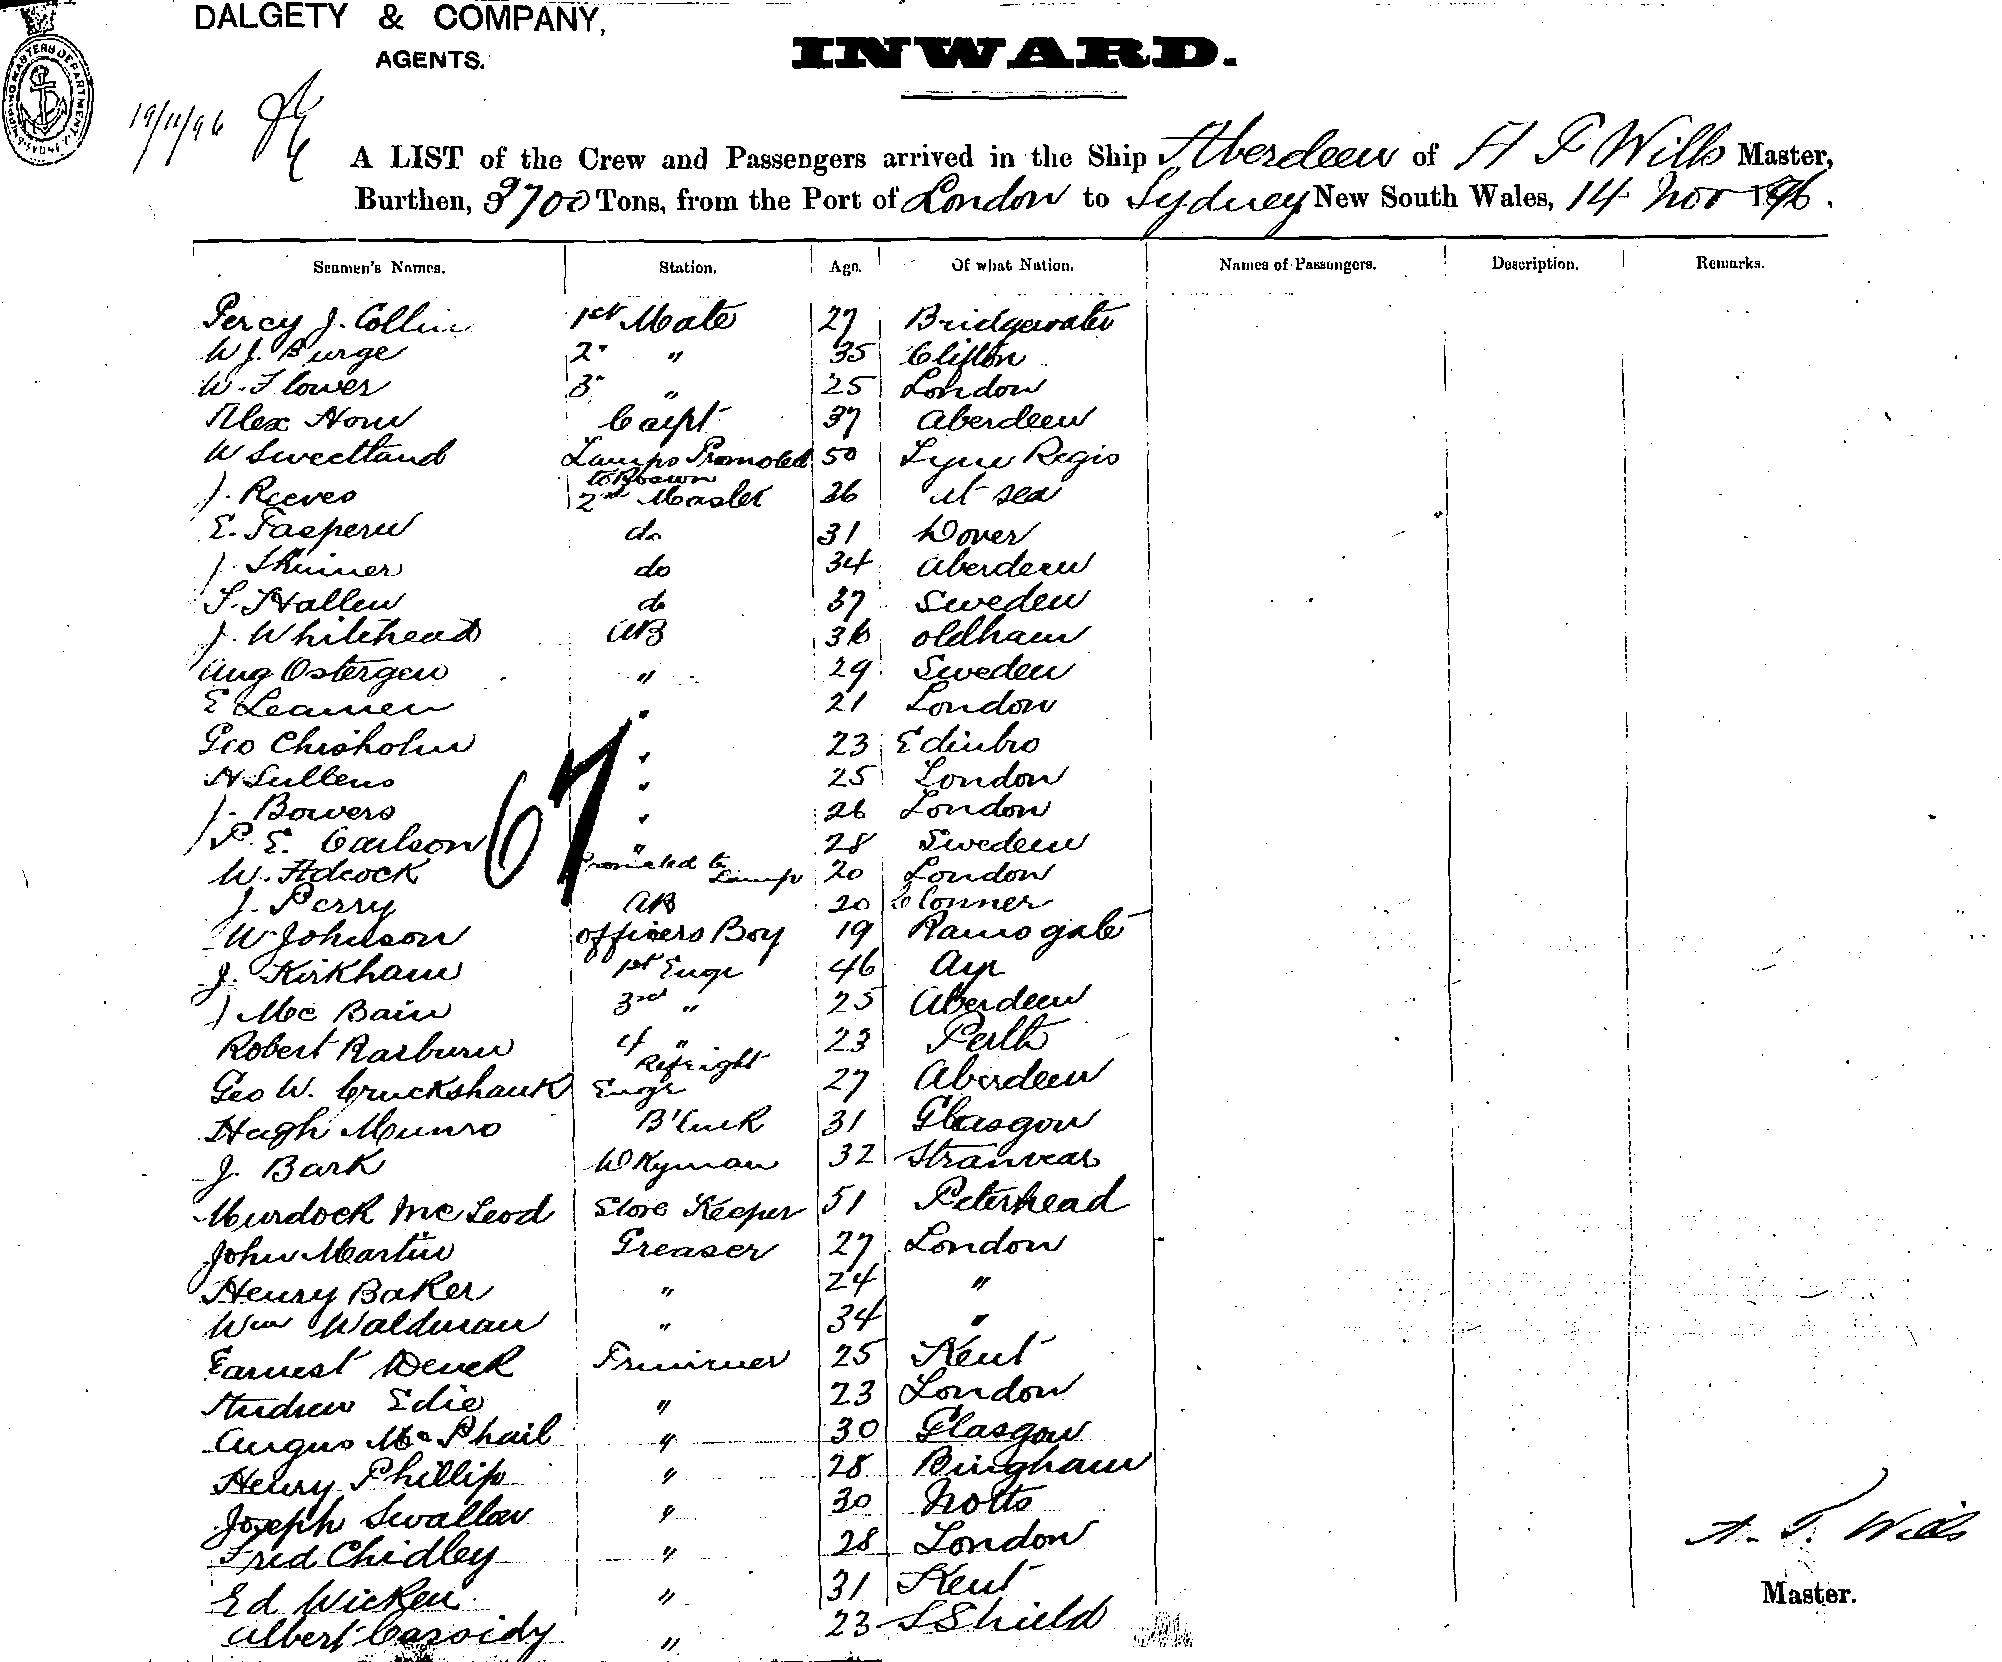 DALGETY & COMPANY,
AGENTS.
INWARD.
19/11/96
A LIST of the Crew and Passengers arrived in the Ship Aberdeen of H F Wills Master,
Burthen, 3700 Tons, from the Port of London to Sydney New South Wales, 14 Nov 1896.
Seamen's Names. Station. Age. Of what Nation. Names of Passengers. Description. Remarks.
Percy J. Collin 1st Mate 27 Bridgewater
W J. Burge 2" " 35 Clifton
W. Flower 3" " 25 London
Alex Horn Carpt 37 Aberdeen
W Sweetland Lamps Promoted 50 Lyme Regis
to Bosun
J. Reeves 2nd Master 26 at sea
E. Jaspern do 31 Dover
J. Skinner do 34 Aberdeen
S. Hallen do 37 Sweden
J. Whitehead AB 36 oldham
Aug Ostergen " 29 Sweden
E Leamen " 21 London
Geo Chisholm " 23 Edinbro
H Sullens " 25 London
J. Bowers " 26 London
P. E. Carlson " 28 Sweden
67
W. Adcock Promoted to Lamps 20 London
J. Perry AB 20 Conner
W Johnson officers Boy 19 Ramsgate
J. Kirkham 1st Engr 46 Ayr
J McBain 3rd " 25 Aberdeen
Robert Raeburn 4 " 23 Perth
Geo W. Cruckshank Refright Engr 27 Aberdeen
Hugh Munro 31 Glasgow
J. Bark Wkyman 32 Stranrear
Murdock McLeod Store Keeper 51 Peterhead
John Martin Greaser 27 London
Henry Baker " 24 "
Wm Waldman " 34 "
Earnest Denck Trimmer 25 Kent
Andrew Edie " 23 London
Angus McPhail " 30 Glasgow
Henry Phillip " 28 Bingham
Joseph Swallow " 30 Notts
Fred Chidley " 28 London
Ed Wicken " 31 Kent
Albert Cassidy " 23 S Shield
H. F. Wills
Master.